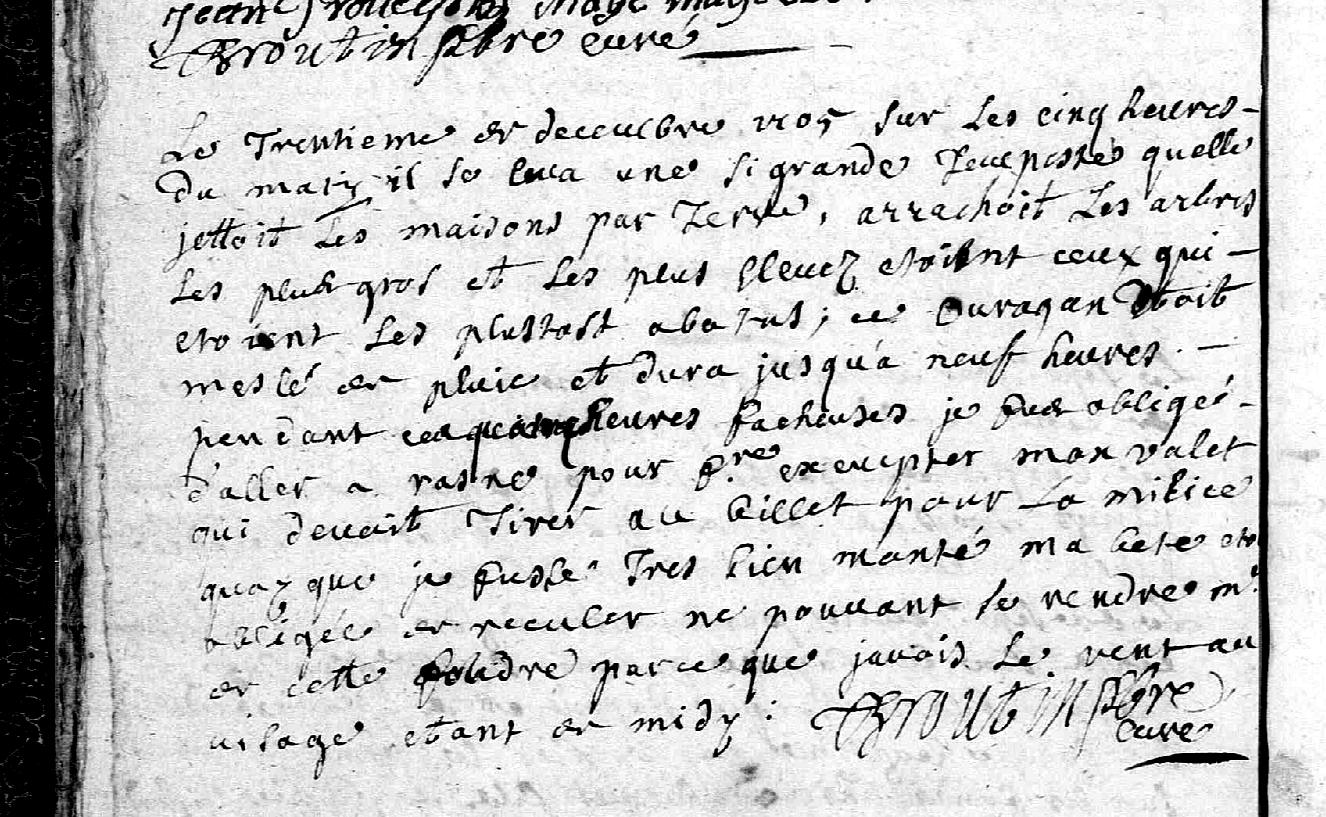 Jean
Troutin pbre curé
Le Trentieme de decembre 1705 sur les cinq heures
du matin il se leva une si grande Tempeste quelle
jettoit les maisons par Terre, arrachoit Les arbres
Les plus gros et les plus Elevez etoient ceux qui
etoient Les plustost abatus; ce Ouragan Etoit
meslé de pluie et dura jusqu'a neuf heures.
pendant ces heures facheuses je fus obligé
d'aller a rasne pour fre exempter mon valet
qui devoit Tirer au billet pour La milice
quoy que je fusse Tres bien monté ma bete etoit
obligée de reculer ne pouvant se rendre
de cette foudre parce que javois Le vent au
visage etant de midy: Troutin pbre
Curé